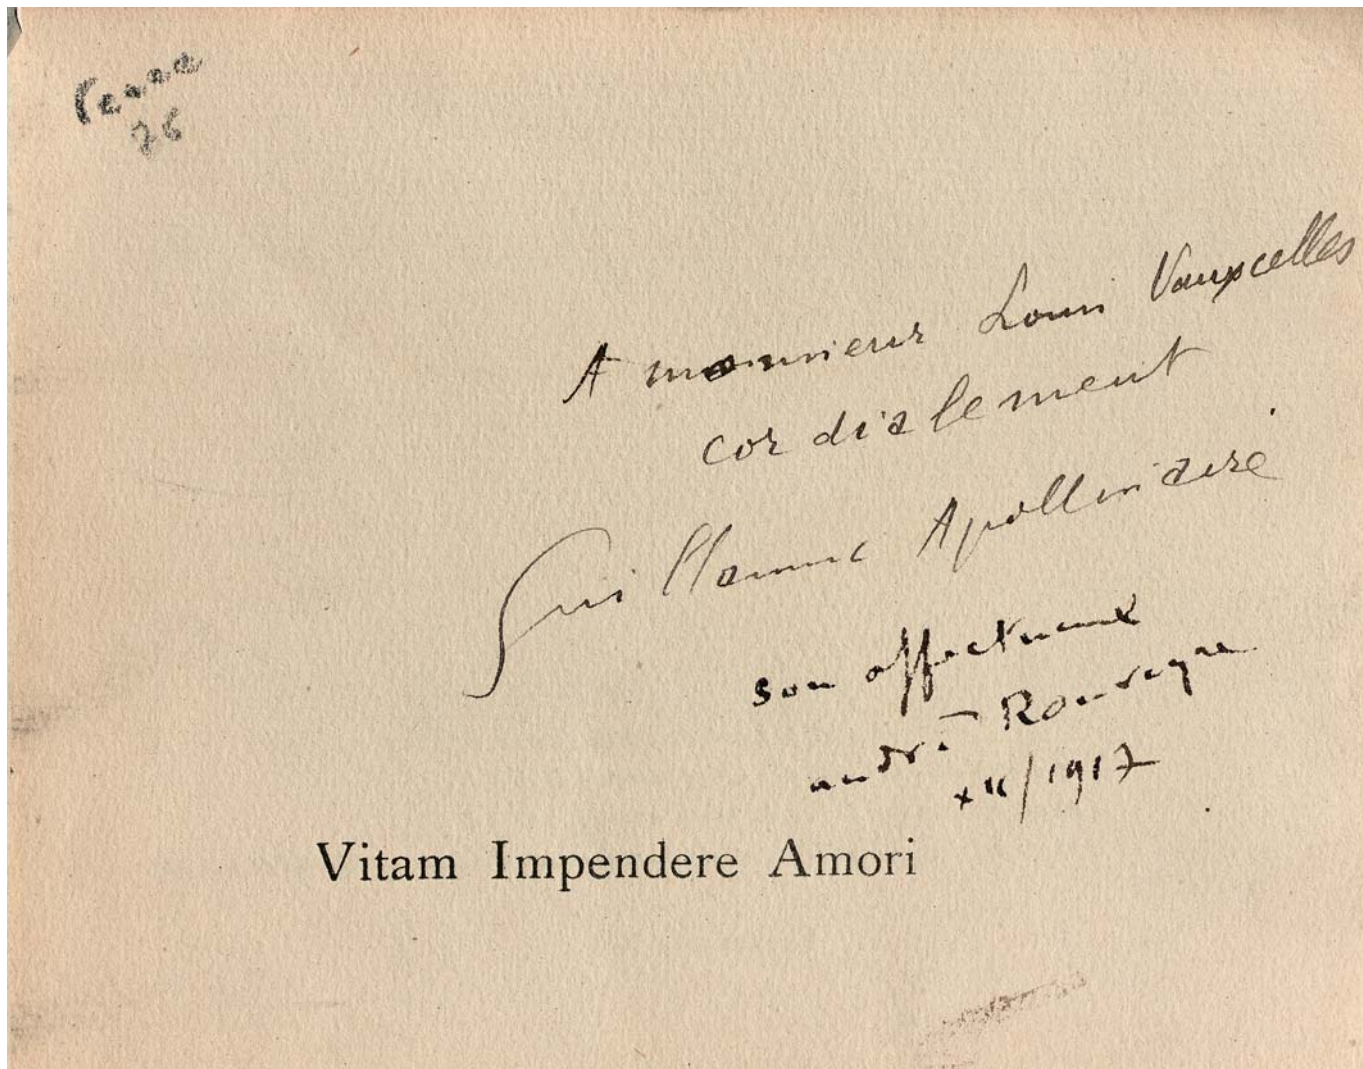 A monsieur Louis Vauxcelles
cordialement
Guillaume Apollinaire
son affectueux
andré Rouveyre
XII/1917
Vitam Impendere Amori